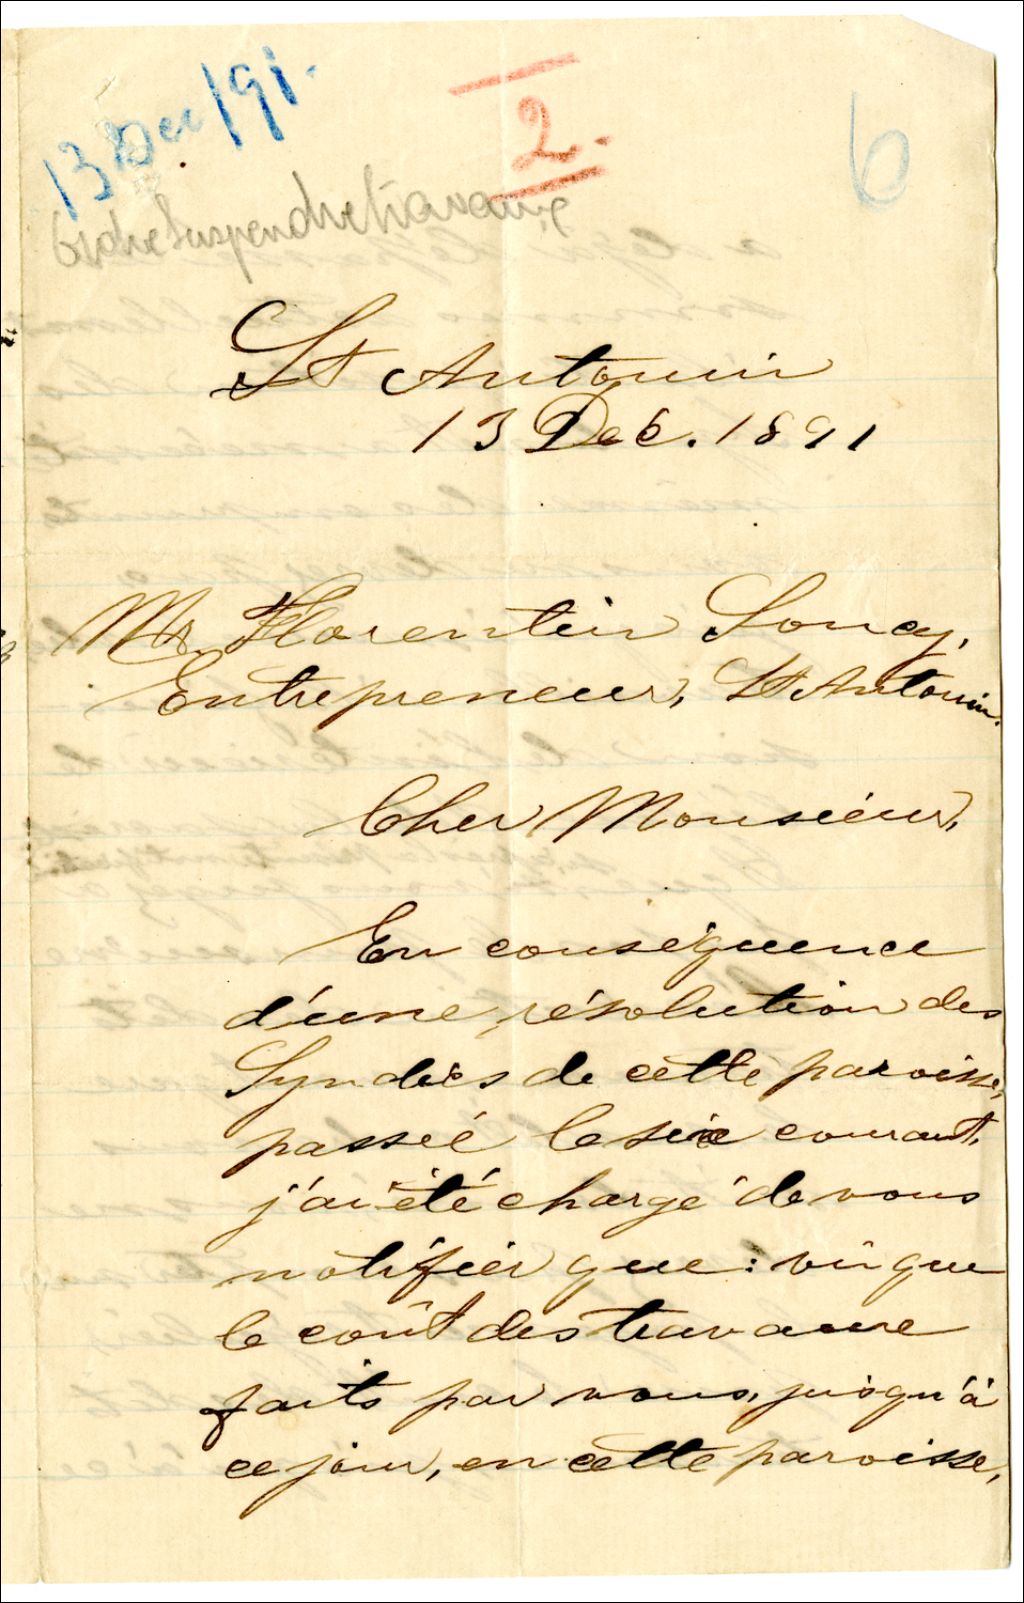 13 Dec/91.
2.
6
Ordre suspendre travaux
St Antonin
13 Dec. 1891
Mr. Florentin Soucy,
Entrepreneur, St Antonin.
Cher Monsieur,
En conséquence
d'une résolution des
Syndics de cette paroisse,
passée le six courant,
j'ai été chargé de vous
notifier que : vû que
le coût des travaux
faits par vous, jusqu'à
ce jour, en cette paroisse,